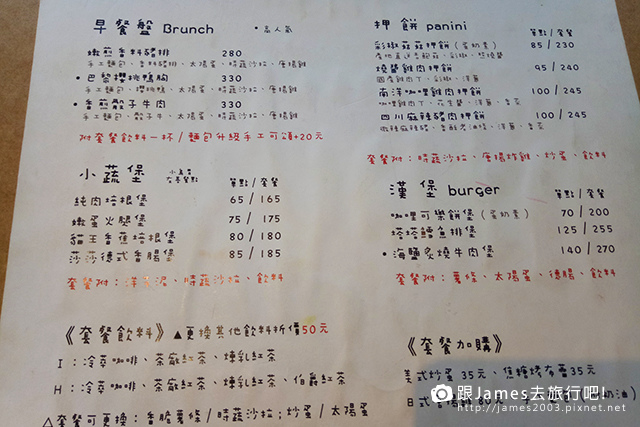 早餐盤 Brunch
• 高人氣
嫩煎香料豬排 280
手工麵包、香料豬排、太陽蛋、時蔬沙拉、唐揚雞
• 巴黎櫻桃鴨胸 330
手工麵包、櫻桃鴨、太陽蛋、時蔬沙拉、唐揚雞
• 香煎骰子牛肉 330
手工麵包、骰子牛、太陽蛋、時蔬沙拉、唐揚雞
附套餐飲料一杯/麵包升級手工可頌+20元
小蔬堡
單點/套餐
純肉培根堡 65 / 165
嫩蛋火腿堡 75 / 175
貓王香蕉培根堡 80 / 180
莎莎德式香腸堡 85 / 185
套餐附:洋芋泥、時蔬沙拉、飲料
押餅 panini
單點/套餐
彩椒菇菇押餅(蛋奶素) 85 / 230
燒蠻雞肉押餅 95 / 240
國產雞肉丁、彩椒、洋蔥
南洋咖哩雞肉押餅 100 / 245
四川麻辣豬肉押餅 100 / 245
套餐附:時蔬沙拉、唐揚炸雞、炒蛋、飲料
漢堡 burger
單點/套餐
咖哩可樂餅堡(蛋奶素) 70 / 200
塔塔鱈魚排堡 125 / 255
• 海鹽炙燒牛肉堡 140 / 270
套餐附:薯條、太陽蛋、德腸、飲料
《套餐飲料》▲更換其他飲料折價50元
I:冷萃咖啡、茶廠紅茶、煉乳紅茶
H:冷萃咖啡、茶廠紅茶、煉乳紅茶、伯爵紅茶
△套餐可更換:香脆薯條/時蔬沙拉;炒蛋/太陽蛋
《套餐加購》
美式炒蛋 35元、焦糖烤布蕾35元
跟James去旅行吧!
http://james2003.pixnet.net